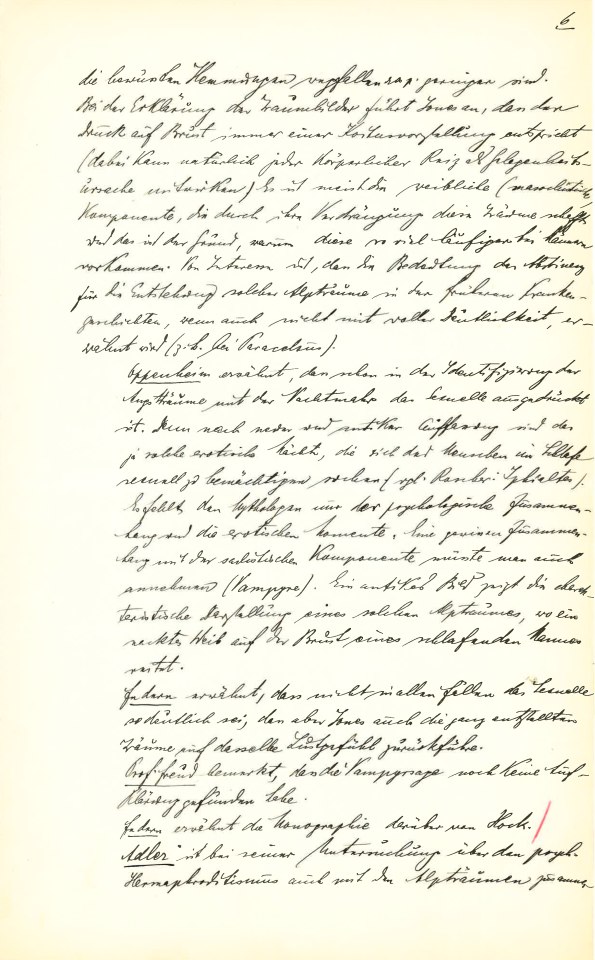 6
die bewussten Hemmungen wegfallen resp. geringer sind.
Bei der Erklärung der Traumbilder führt Jones an, dass der
Druck auf Brust immer einer Koitusvorstellung entspricht
(dabei kann natürlich jeder körperlicher Reiz als Gelegenheits-
ursache mitwirken) Es ist meist die weibliche (masochistische)
Komponente, die durch ihre Verdrängung diese Träume schafft
und das ist der Grund, warum diese so viel häufiger bei Männern
vorkommen. Von Interesse ist, dass die Bedeutung der Abstinenz
für die Entstehung solcher Alpträume in den früheren Kranken-
geschichten, wenn auch nicht mit voller Deutlichkeit, er-
wähnt wird (z.b. bei Paracelsus).
Oppenheim erwähnt, dass schon in der Identifizierung der
Angstträume mit der Nachtmahr das Sexuelle ausgedrückt
ist. Denn nach neuer und antiker Auffassung sind das
ja solche erotische Mächte, die sich des Menschen im Schlafe
sexuell zu bemächtigen suchen (vgl. Roscher: Ephialtes).
Es fehlt den Mythologen nur der psychologische Zusammen-
hang und die erotischen Momente. Eine gewisse Zusammen-
hang mit der sadistischen Komponente müsste man auch
annehmen (Vampyre). Ein antikes Bild zeigt die charak-
teristische Darstellung eines solchen Alptraumes, wo ein
nacktes Weib auf der Brust eines schlafenden Mannes
reitet.
Federn erwähnt, dass nicht in allen Fällen das Sexuelle
so deutlich sei, dass aber Jones auch die ganz entstellten
Träume auf dasselbe Lustgefühl zurückführe.
Prof. Freud bemerkt, dass die Vampyrsage noch keine Auf-
klärung gefunden habe.
Federn erwähnt die Monographie darüber von Hock.
Adler ist bei seiner Untersuchung über den psych.
Hermaphroditismus auch mit den Alpträumen zusamme-